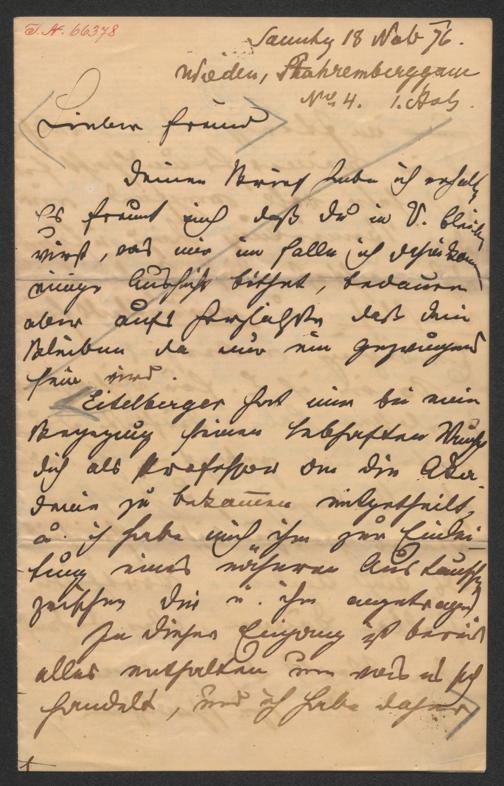 I.N. 66378
Samstag 18 Nov 76.
Wieden, Starhemberggasse
Nro. 4. 1. Stock
Lieber Freund
Deinen Brief habe ich erhalten
Es freut mich daß du in V. bleiben
wirst, was mir im Falle ich
einige Aussicht biethet, bedauere
aber aufs herzlichste daß dein
Bleiben da nur ein gezwungenes
sein wird.
Eitelberger hat mir bei einer
Begegnung seinen lebhaften Wunsch
dich als Professor an die Aka-
demie zu bekommen mitgetheilt,
u. ich habe mich ihm zur Einlei-
tung eines näheren Austausches
zwischen dir u. ihm angetragen
In diesem Eingang ist bereits
alles enthalten um was es sich
handelt, und ich habe daher